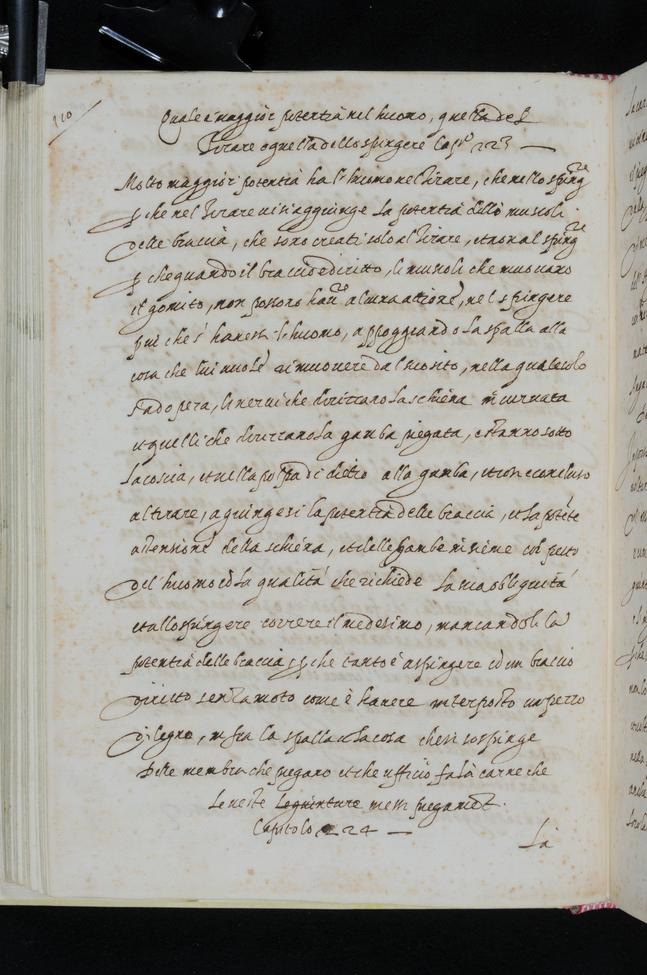 110
Quale è maggior potentia nel huomo, quella del
Tirare o quella dello spingere Cap.º 223 —
Molto maggior potentia ha l'huomo nel tirare, che nello sping.re
p che nel tirare vi si aggiunge la potentia delli muscoli
delle braccia, che sono creati solo al tirare, et non al sping.re
p che quando il braccio è diritto, li muscoli che muovano
il gomito, non possono hau.re alcuna attione, nel spingere
piu che s' havessi l'huomo, appoggiando la spalla alla
cosa che lui vuole rimuovere dal suo sito, nella quale solo
s'adopera, li nervi che dirizzano la schiena incurvata
et quelli che dirizzano la gamba piegata, e stanno sotto
la coscia, et nella polpa di dietro alla gamba, et così è concluso
al tirare, agiungesi la potentia delle braccie, et la potete
astensione della schiena, et delle gambe insieme col petto
del huomo ed la qualità che richiede la sua obliquità
et allo spingere correre il medesimo, mancandoli la
potentia delle braccia p che tanto è a spingere cö un braccio
diritto senza moto come è havere interposto un pezzo
di legno, in fra la spalla e la cosa che si sospinge
Delle membra che piegano et che ufficio fa la carne che
le veste in esso piegam.to
Capitolo 224 —
La